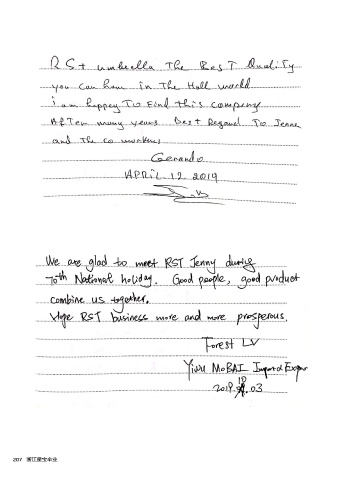 RSt umbrella The BesT Quality
you Can have in The Hall world
i am happy To Find this company
AfTer many years Best Regard To Jenna
and The Co workers
Gerando
APRIL 12 2019
We are glad to meet RST Jenny during
70th National holiday. Good people, good product
combine us together.
Hope RST business more and more prosperous.
Forest LV
Yiwu MOBAI Import & Export
2019.10.03
207 浙江星宝伞业